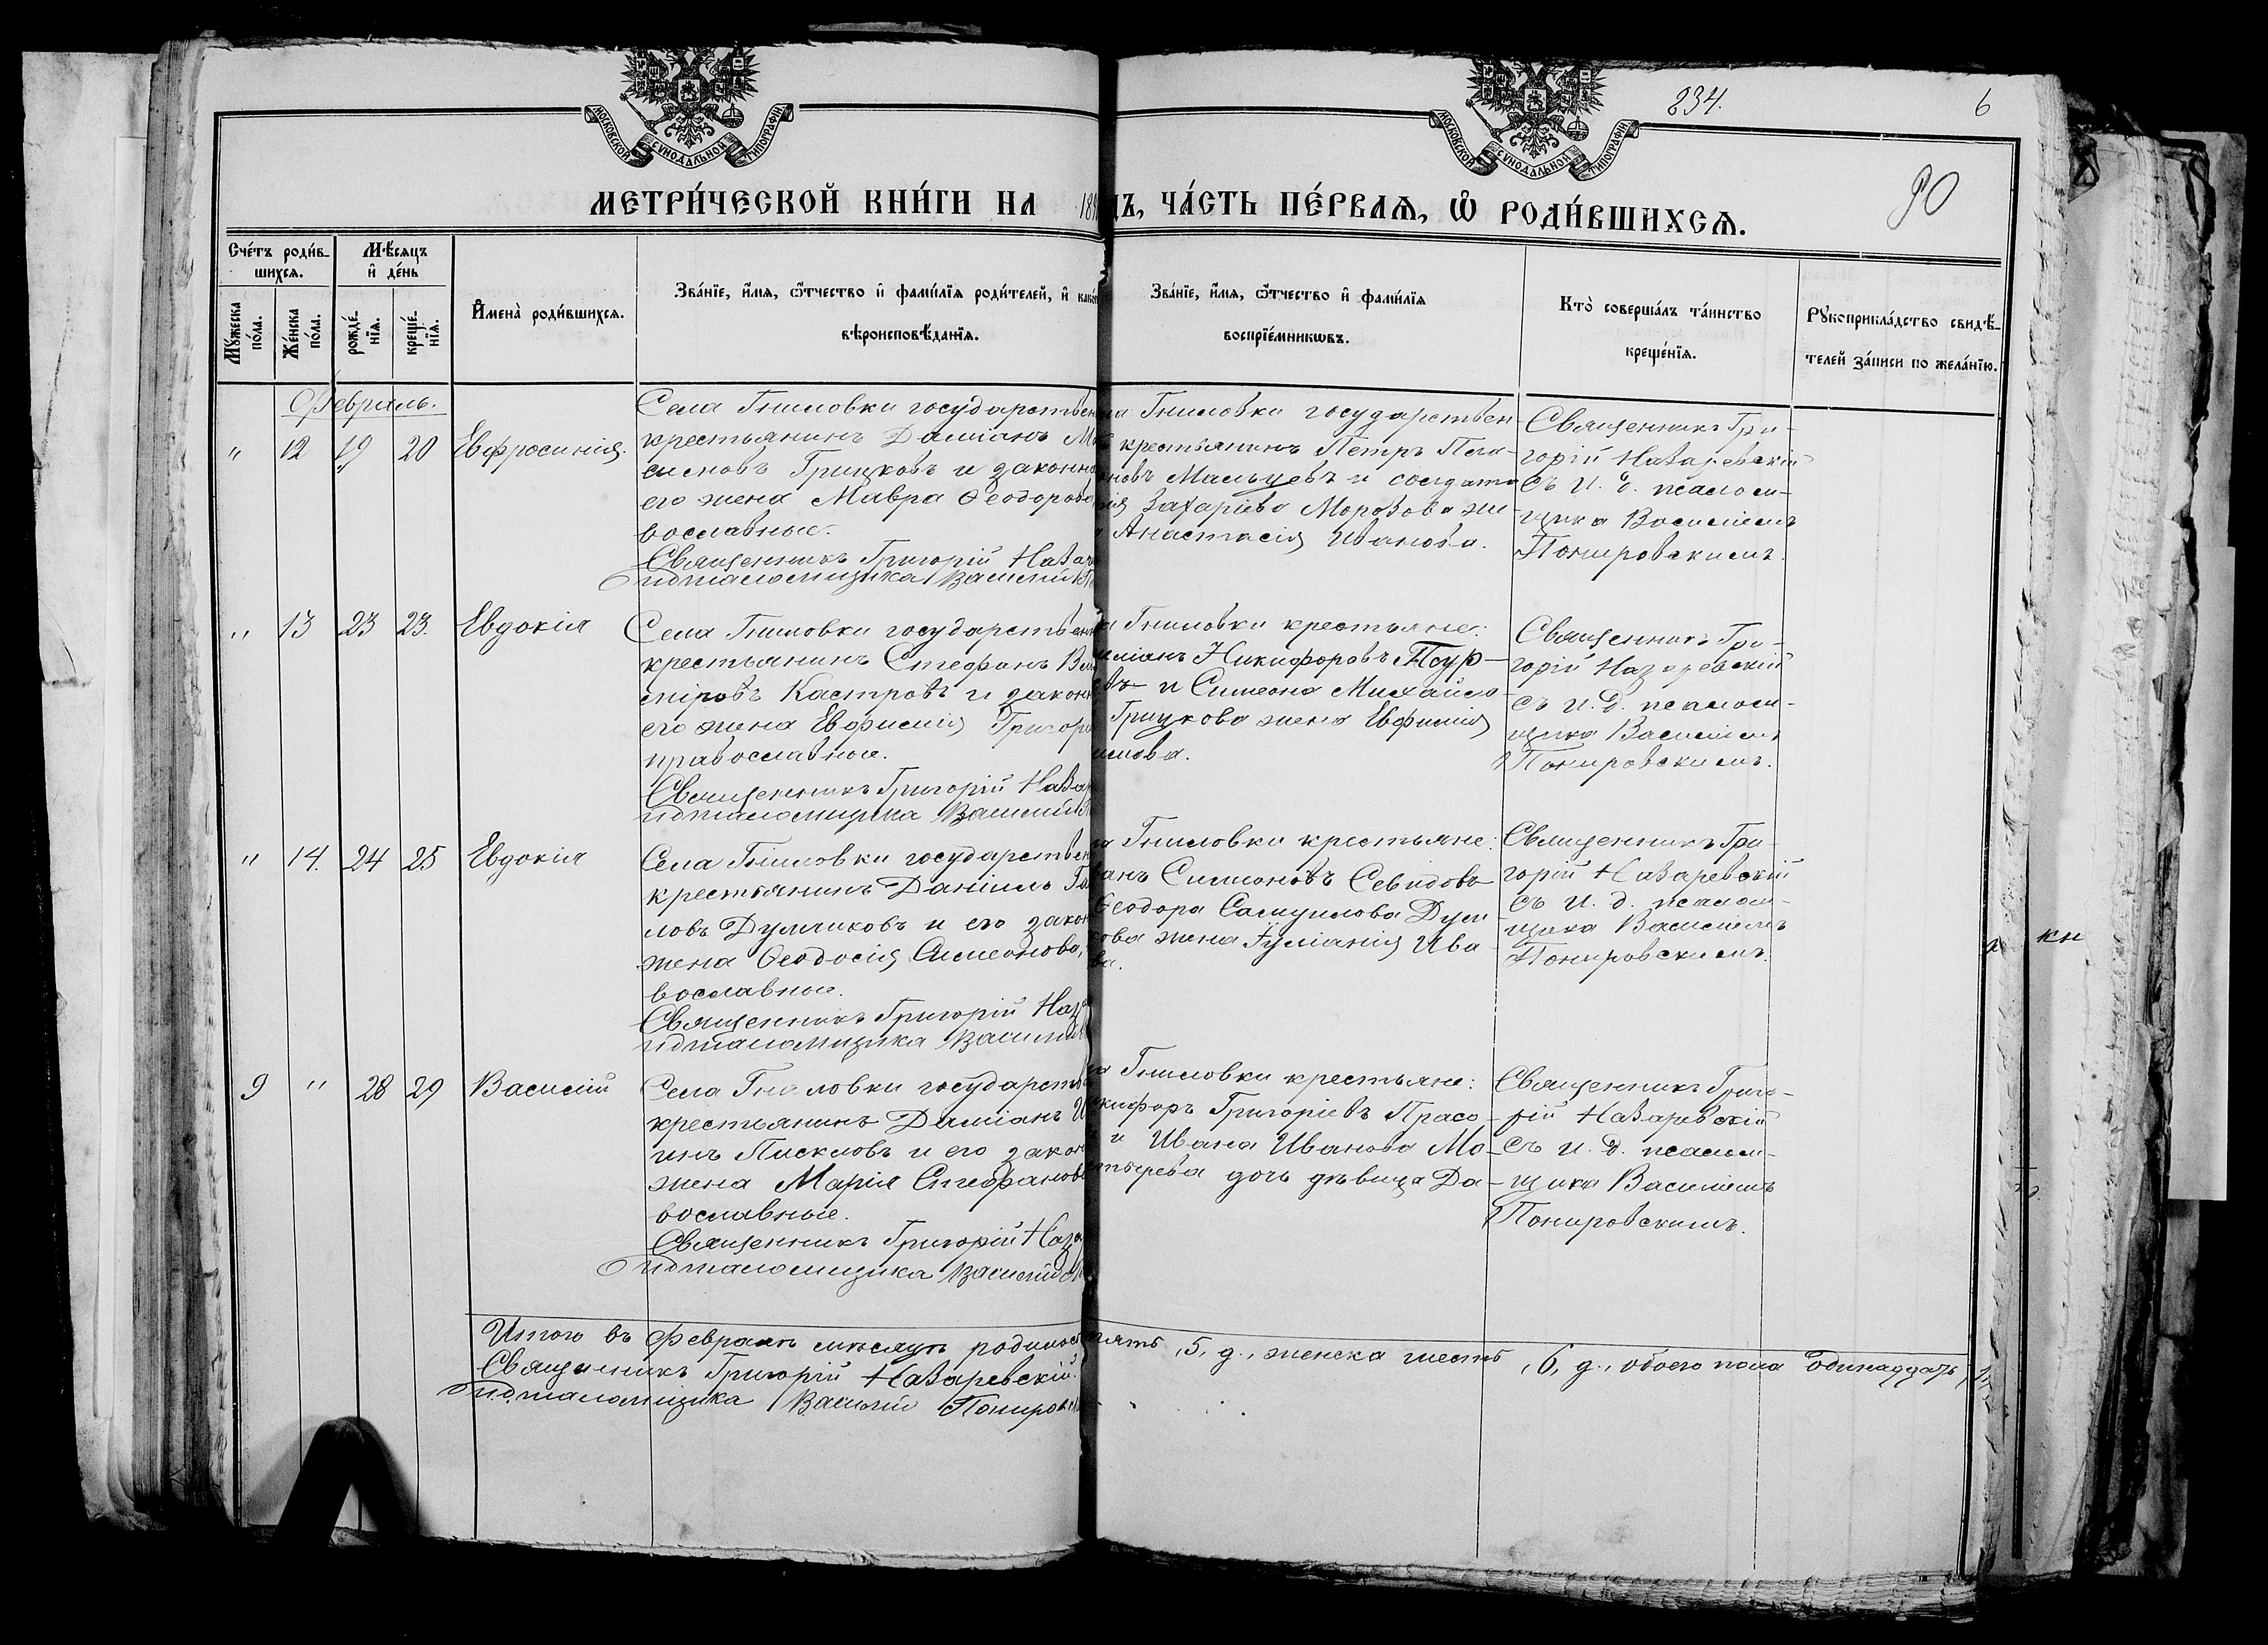 МОСКОВСКОЙ СУНОДАЛЬНОЙ ТИПОГРАФІИ
МОСКОВСКОЙ СУНОДАЛЬНОЙ ТИПОГРАФІИ
234.
6
90
МЕТРИ́ЧЕСКОЙ КНИ́ГИ НА 18
ДЪ, ЧА́СТЬ ПЕ́РВАѦ, Ѿ РОДИ́ВШИХСѦ.
Сче́тъ роди́в-
шихсѧ.
Мѣ́сѧцъ
и҆ де́нь
Мꙋ́жеска
по́ла.
Же́нска
по́ла.
рожде́-
нїѧ.
креще́-
нїѧ.
И҆мена̀ роди́вшихсѧ.
Зва́нїе, и҆́мѧ, ѻ҆́тчество и҆ фами́лїѧ роди́телей, и҆ како́
вѣроисповѣ́данїѧ.
Зва́нїе, и҆́мѧ, ѻ҆́тчество и҆ фами́лїѧ
воспрїе́мникѡвъ.
Кто̀ соверша́лъ та́инство
креще́нїѧ.
Рꙋкоприкла́дство свидѣ́-
телей за́писи по жела́нїю.
Февраль.
" 12 19 20 Евфросинія.
Села Гниловки государствен
крестьянинъ Даміанъ М
симовъ Грицковъ и законна
его жена Мавра Ѳеодорова
вославные.
Священникъ Григорій Назар
идпсаломщика Василій П
Гниловки государствен-
крестьянинъ Петръ
новъ Мальцевъ и солдат
Захаріева Морозова же-
Анастасія Иванова.
Священникъ Гри-
горій Назаревскій
съ и. д. псалом-
щика Василіемъ
Понировскимъ.
" 13 23 23. Евдокія
Села Гниловки государствен
крестьянинъ Стефанъ Вла
міровъ Кастровъ и закон
его жена Евфимія Григор
православные.
Священникъ Григорій Назар
идпсаломщика Василій
Гниловки крестьяне:
Никифоровъ
въ и Симеона Михайло-
Грицкова жена Евфимія
имова.
Священникъ Гри-
горій Назаревскій
съ и. д. псалом-
щика Василіемъ
Понировскимъ.
" 14. 24 25 Евдокія
Села Гниловки государствен
крестьянинъ Даніилъ
ловъ Думчиковъ и его закон
жена Ѳеодосія Симеонова,
вославные.
Священникъ Григорій Наза
идпсаломщика Василій
Гниловки крестьяне:
ванъ Симеоновъ Севидовъ
Ѳеодора Самуилова Дум-
кова жена Іуліанія Ива-
ва.
Священникъ Гри-
горій Назаревскій
съ и. д. псалом-
щика Василіемъ
Понировскимъ.
9 " 28 29 Василій
Села Гниловки государств
крестьянинъ Даміанъ И
инъ Пискловъ и его закон
жена Марія Стефанова
вославные.
Священникъ Григорій Наза
идпсаломщика Василій
Гниловки крестьяне:
кифоръ Григоріевъ Прасо-
и Ивана Иванова Мо-
тырева дочь дѣвица Да-
Священникъ Григо-
рій Назаревскій
съ и. д. псалом-
щика Василіемъ
Понировскимъ.
Итого въ Февралѣ мѣсяцѣ родилос пять, 5, д., женска шесть, 6, д., обоего пола одинадцать
Священникъ Григорій Назаревскій.
и.д. псаломщика Василій Пониров
кн